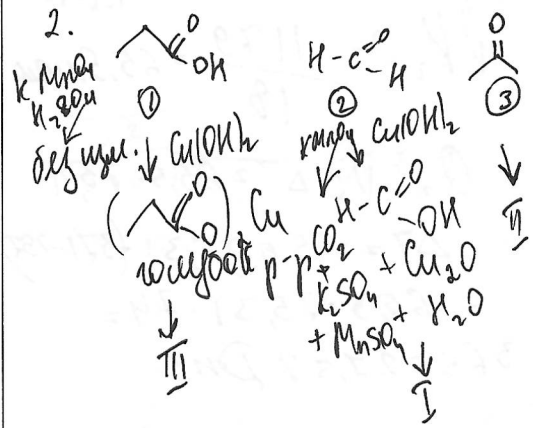 2.
O
OH
①
KMnO4
H2SO4
без изм.
Cu(OH)2
O
O
2 Cu
голубой р-р
III
O
H-C
H
②
KMnO4
Cu(OH)2
H-C
O
OH
+ Cu2O
+ H2O
CO2
+ K2SO4
+ MnSO4
I
O
③
II